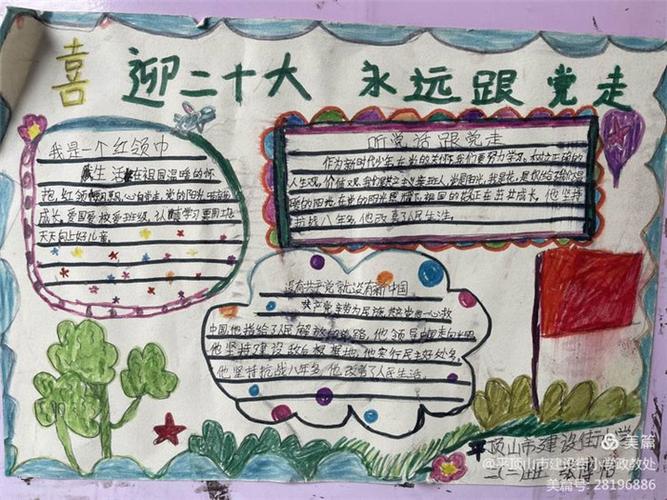 喜迎二十大 永远跟党走
我是一个红领巾
生活在祖国温暖的怀
抱,红领
成长,爱国爱校爱班级,认真学习要用功
天天向上好儿童
听党话跟党走
作为新时代少年在党的关怀,我们更努力学习,树立正确的
人生观,价值观,
阳光,在党的阳光照耀下祖国的花正在茁壮成长,他坚持
抗战八年多,他改善了人民生活。
没有共产党就没有新中国
共产党辛劳为民族,共产党他一心救
中国他指给了人民解放的道路,他领导中国走向光明
他坚持建设敌后根据地,他实行民主好处多,
他坚持抗战八年多,他改善了人民生活。
平顶山市建设街小学
二(一)班
美篇
@平顶山市建设街小学政教处
美篇号: 28196886